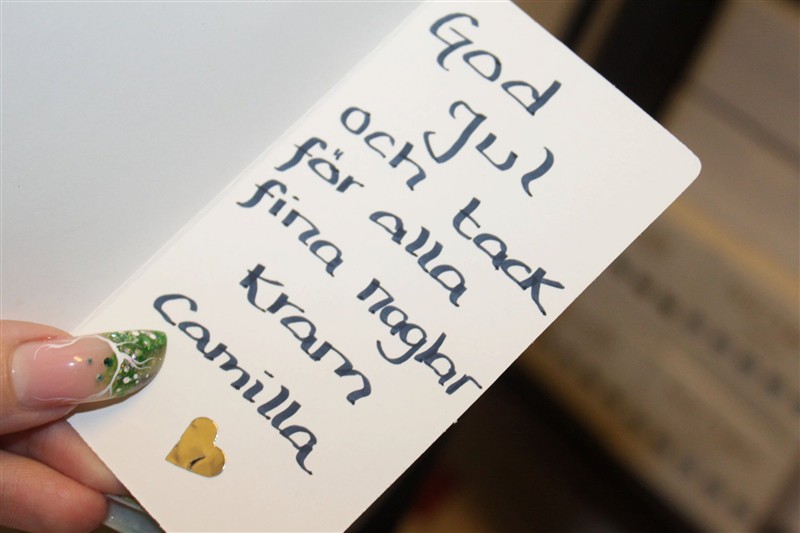 God
Jul
och tack
för alla
fina naglar
Kram
Camilla